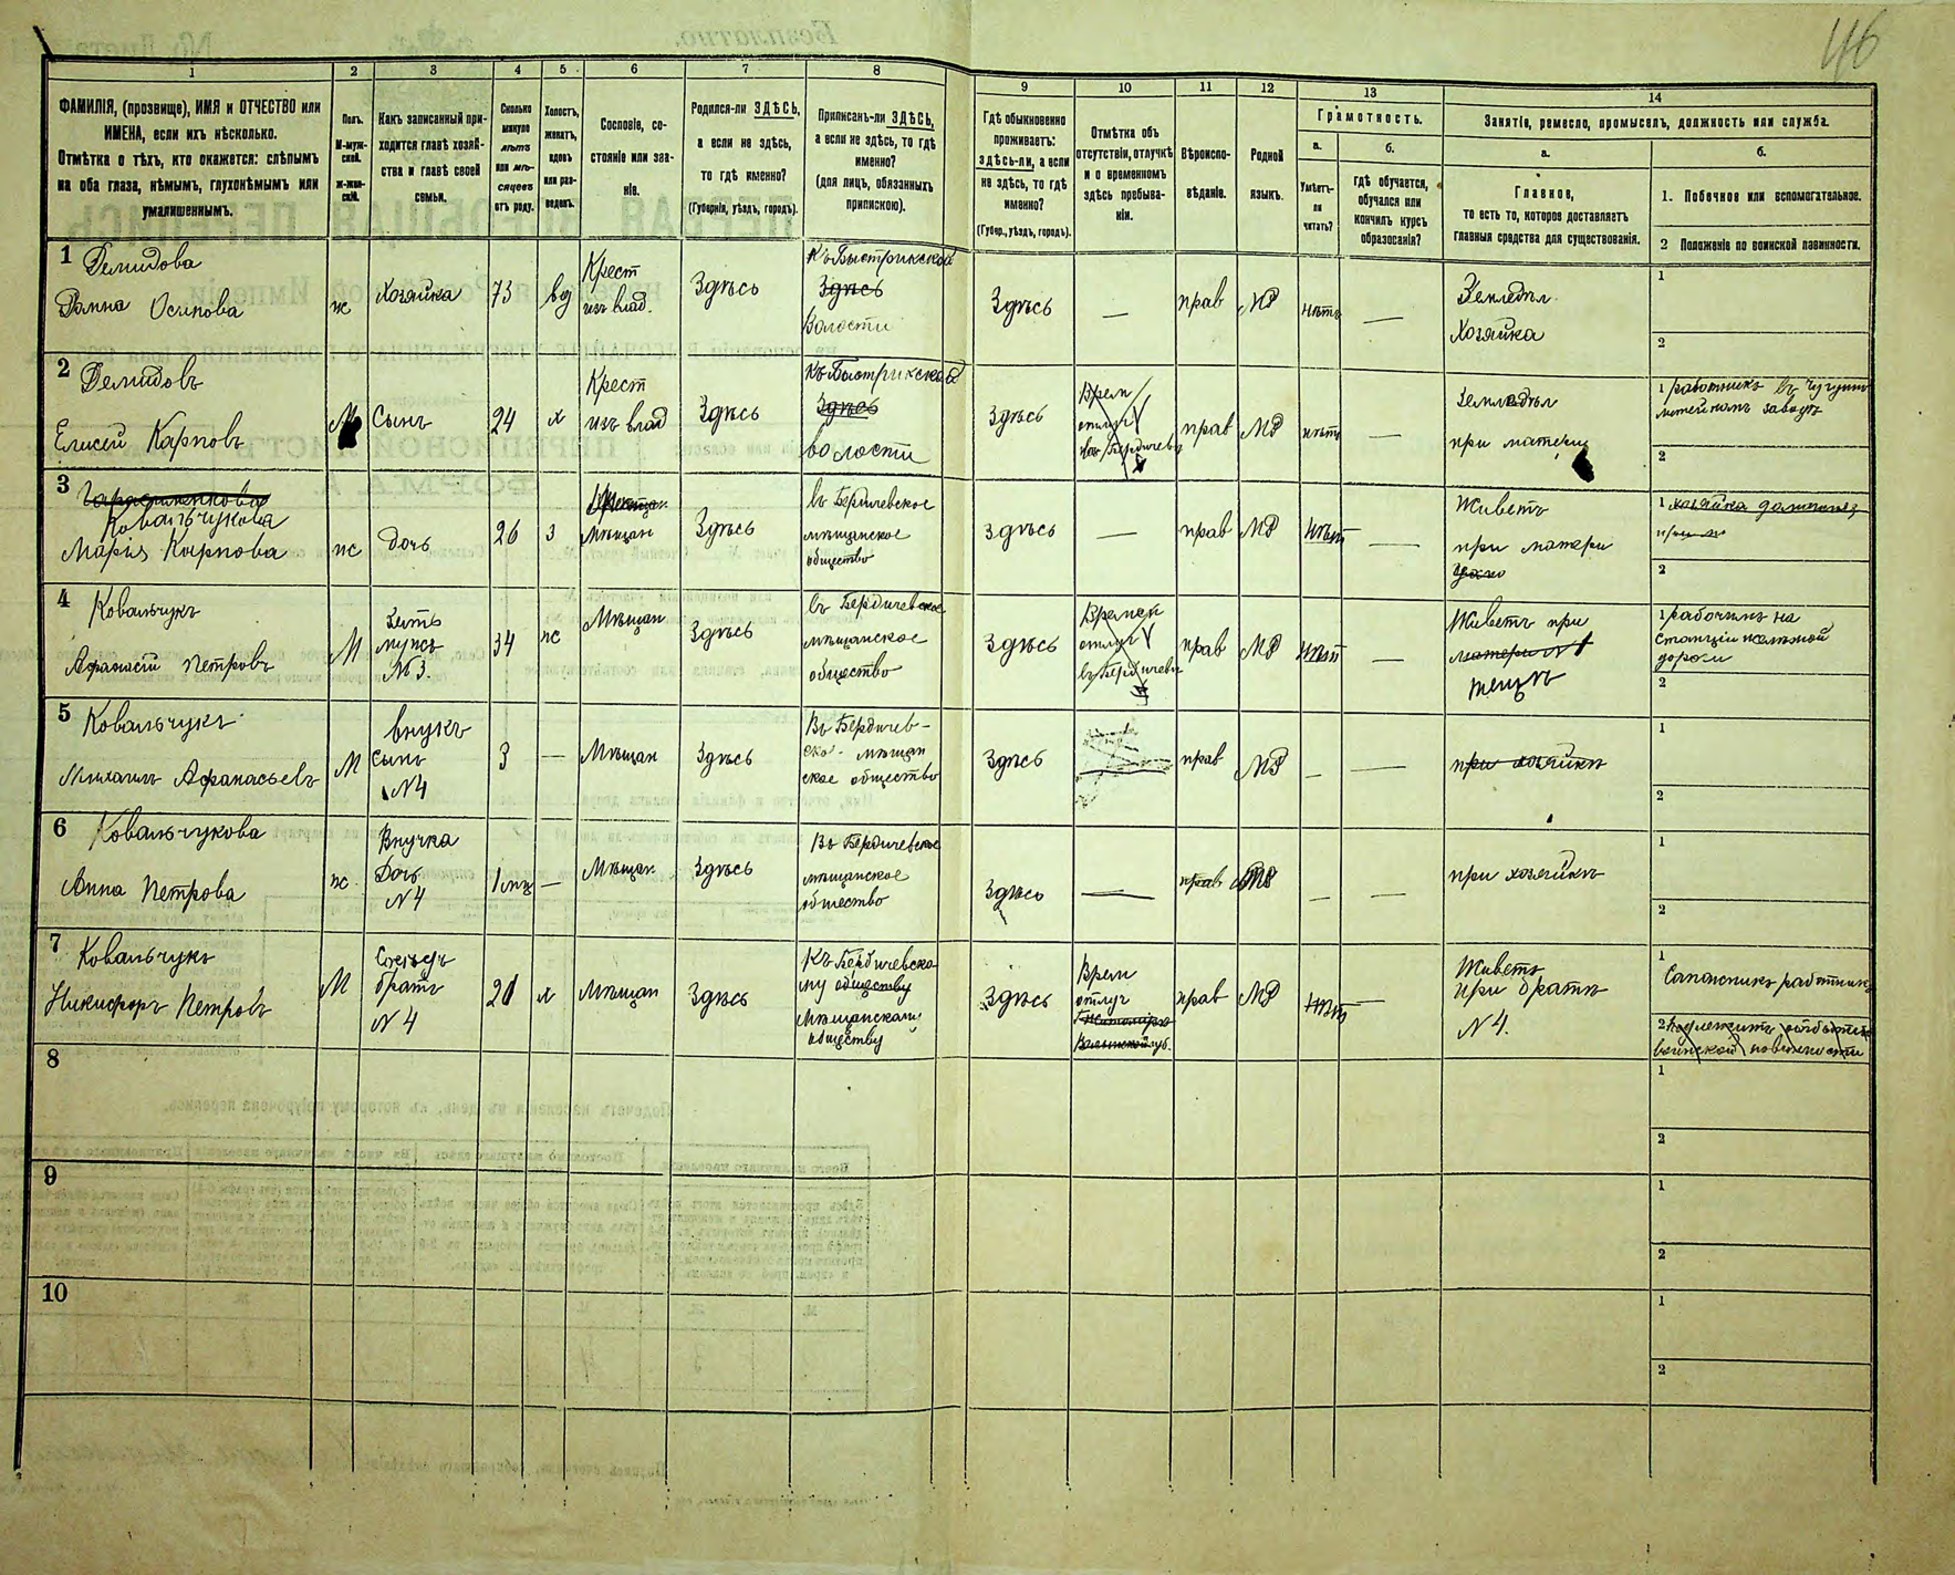 46
1
2
3
4
5
6
7
8
9
10
11
12
13
14
ФАМИЛІЯ, (прозвище), ИМЯ и ОТЧЕСТВО или
ИМЕНА, если ихъ нѣсколько.
Отмѣтка о тѣхъ, кто окажется: слѣпымъ
на оба глаза, нѣмымъ, глухонѣмымъ или
умалишеннымъ.
Полъ.
М-муж-
ской.
Ж-жен-
скій.
Какъ записанный при-
ходится главѣ хозяй-
ства и главѣ своей
семьи.
Сколько
минуло
лѣтъ
или мѣ-
сяцевъ
отъ роду.
Холостъ,
женатъ,
вдовъ
или раз-
веденъ.
Сословіе, со-
стояніе или зва-
ніе.
Родился-ли ЗДѢСЬ,
а если не здѣсь,
то гдѣ именно?
(Губернія, уѣздъ, городъ).
Приписанъ-ли ЗДѢСЬ,
а если не здѣсь, то гдѣ
именно?
(для лицъ, обязанныхъ
припискою).
Гдѣ обыкновенно
проживаетъ:
здѣсь-ли, а если
не здѣсь, то гдѣ
именно?
(Губер., уѣздъ, городъ).
Отмѣтка объ
отсутствіи, отлучкѣ
и о временномъ
здѣсь пребыва-
ніи.
Вѣроиспо-
вѣданіе.
Родной
языкъ.
Грамотность.
а.
Умѣетъ-
ли
читать?
б.
гдѣ обучается,
обучался или
кончилъ курсъ
образованія?
Занятіе, ремесло, промыселъ, должность или служба.
а.
Главное,
то есть то, которое доставляетъ
главныя средства для существованія.
б.
1. Побочное или вспомогательное.
2 Положеніе по воинской повинности.
1 Демидова
Осипова
ж
Хозяйка
73
вд
Крест
изъ влад.
Здѣсь
Къ Быстрикской
Здѣсь
Волости
Здѣсь
—
прав
МР
нѣтъ
—
Земледѣл
Хозяйка
1
2
2 Демидовъ
Елисей Карповъ
М
Сынъ
24
х
Крест
изъ влад
Здѣсь
Къ Быстрикской
Здѣсь
волости
Здѣсь
Врем
отлуч
Бердичевъ
прав
МР
нѣтъ
—
Земледѣл
при матери
1 работникъ въ чугунно
литейномъ заводѣ
2
3
Ковальчукова
Марія Карпова
ж
дочь
26
з
Мѣщан
Здѣсь
въ Бердичевское
мѣщанское
общество
здѣсь
—
прав
МР
Нѣтъ
—
Живетъ
при матери
1 хозяйка
2
4 Ковальчукъ
Афанасій Петровъ
М
Зять
мужъ
№ 3.
34
ж
Мѣщан
Здѣсь
въ Бердичевское
мѣщанское
общество
Здѣсь
Времен
отлуч
въ Бердичевъ
прав
МР
Нѣтъ
—
Живетъ при
матери N 1
тещѣ
1 рабочимъ на
станціи желѣзной
дороги
2
5 Ковальчукъ
Михаилъ Афанасьевъ
М
внукъ
сынъ
N 4
3
—
Мѣщан
Здѣсь
Въ Бердичев-
ско- мѣщан
ское общество
Здѣсь
прав
МР
—
—
при хозяйкѣ
1
2
6 Ковальчукова
Анна Петрова
ж
Внучка
Дочь
N 4
1 мц
—
Мѣщан
Здѣсь
Въ Бердичевское
мѣщанское
общество
Здѣсь
—
прав
МР
—
—
при хозяйкѣ
1
2
7 Ковальчукъ
Никифоръ Петровъ
М
братъ
N 4
21
х
Мѣщан
Здѣсь
Къ Бердичевско
му обществу
Мѣщанскому
обществу
Здѣсь
Врем
отлуч
Житомиръ
Волынской губ.
прав
МР
Нѣтъ
—
Живетъ
при братѣ
N 4.
1
Сапожникъ работникъ
2 Подлежитъ отбытію
воинской повинности
8
1
2
9
1
2
10
1
2